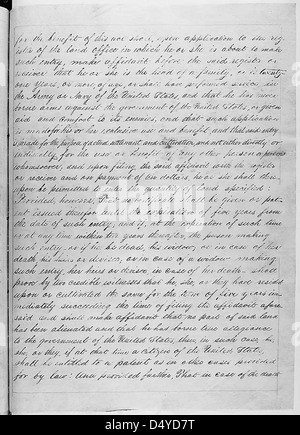 for the benefit of this act shall, upon application to the reg
ister of the land office in which he or she is about to make
such entry, make affidavit before the said register or
receiver that he or she is the head of a family, or is twenty
one years, or more of age, or shall have performed service in
the Army or Navy of the United States, and that he has never
borne arms against the government of the United States, or given
aid and comfort to its enemies, and that such application
is made for his or her exclusive use and benefit, and that said entry
is made for the purpose of actual settlement and cultivation, and not either directly or
indirectly, for the use or benefit of any other person or persons
whomsoever, and upon filing the said affidavit with the register
or receiver and on payment of ten dollars he or she shall there
upon be permitted to enter the quantity of land specified:
Provided, however, That no certificate shall be given or pat
ent issued therefor until the expiration of five years from
the date of such entry, and if, at the expiration of such time
or at any time within two years thereafter, the person making
such entry, or if he be dead, his widow, or in case of her
death, his heirs or devisee, or in case of a widow making
such entry, her heirs or devisee, in case of her death, shall
prove by two credible witnesses that he, she, or they have resided
upon or cultivated the same for the term of five years im
mediately succeeding the time of filing the affidavit afore
said and shall make affidavit that no part of said land
has been alienated and that he has borne true allegiance
to the government of the United States, then in such case, he,
she, or they, if at that time a citizen of the United States,
shall be entitled to a patent as in other cases provided
for by law: And provided further, That in case of the death
alamy
D4YD7T